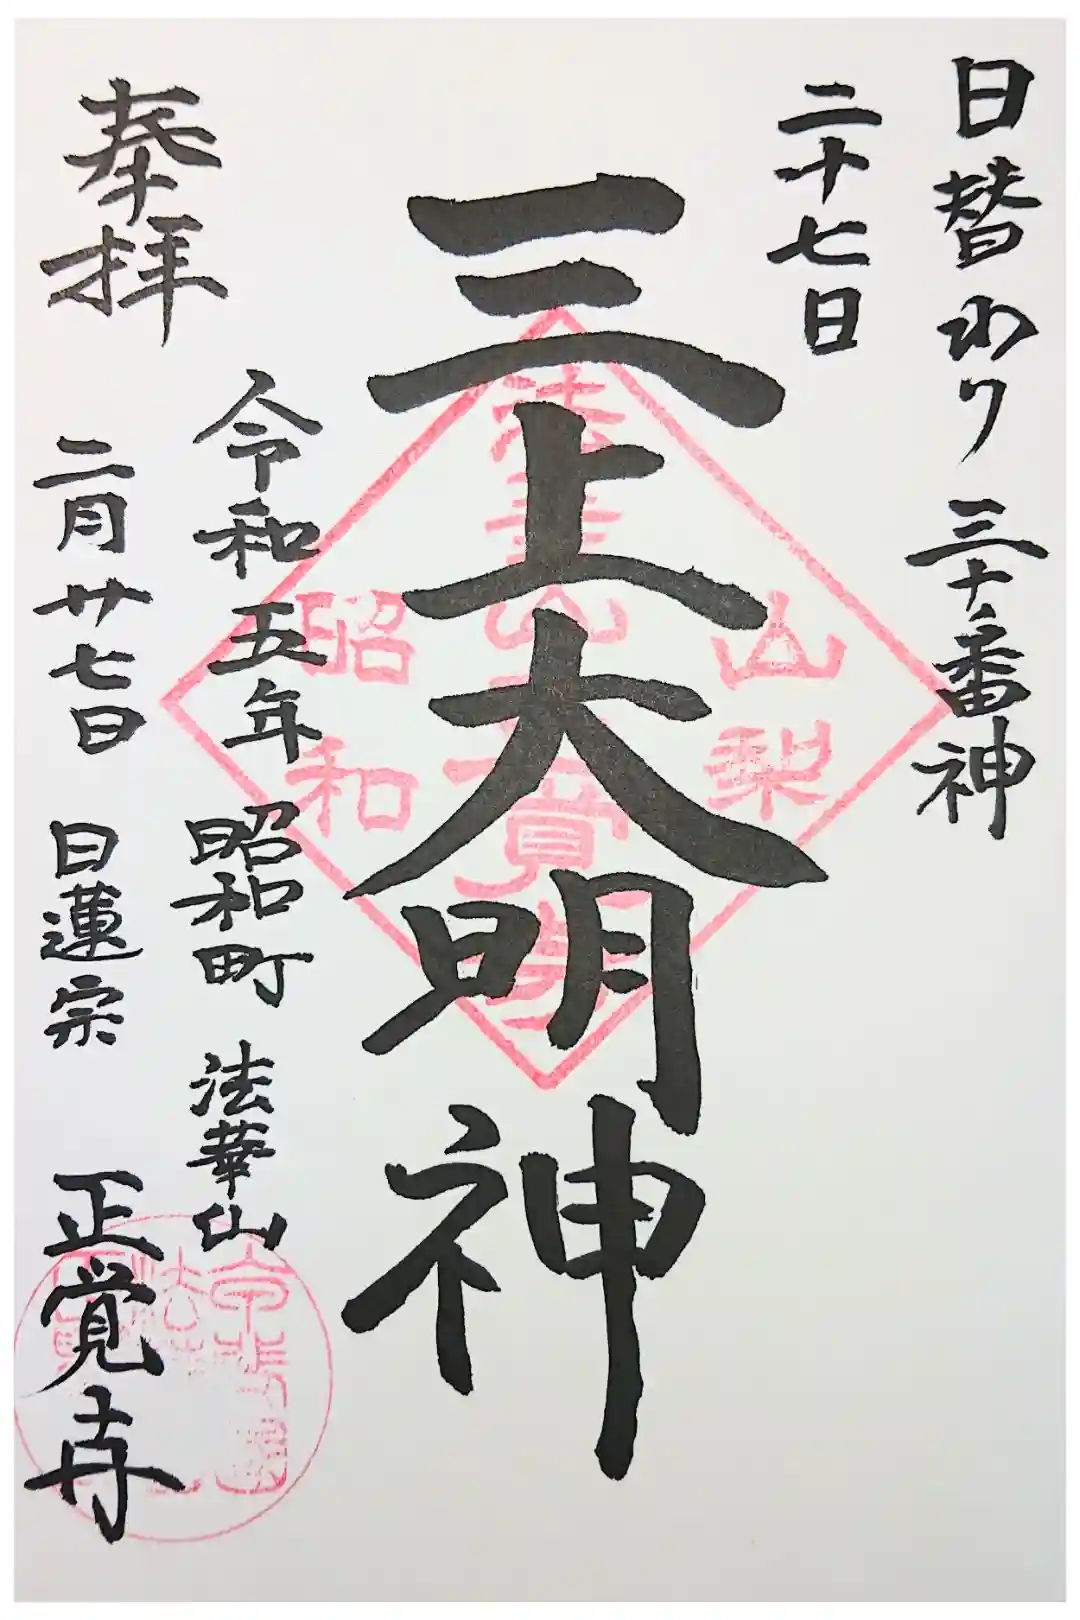 日替わり 三十番神
二十七日
三上大明神
奉拝
令和五年 昭和町 法華山
二月廿七日 日蓮宗 正覚寺
山梨
法華山正覚寺
昭和